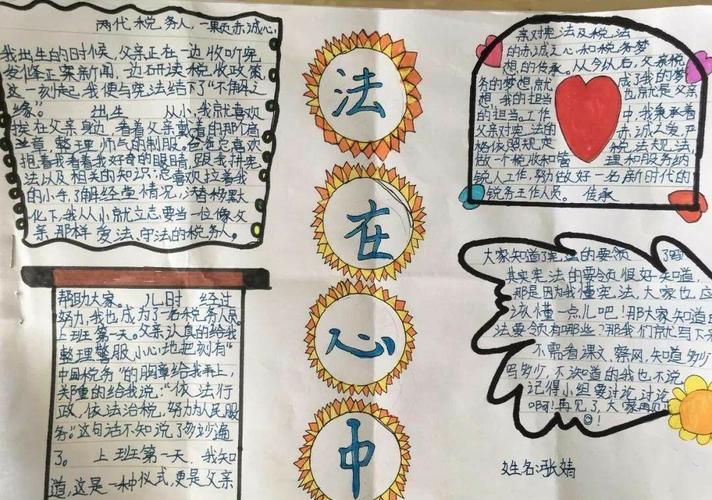 两代税务人,一颗赤诚心
我出生的时候,父亲正在一边收听宪
发修正案新闻,一边研读税收政策
这一刻起,我便与宪法结下了"不解之
缘"。 出生 从小,我就喜欢
挨在父亲身边,看着父亲戴着的那值
章,整理帅气的制服。父亲总喜欢
抱着我看着我好奇的眼睛,跟我讲宪
法以及相关的知识;总喜欢拉着我
的小手,了解经堂情况,潜移默
化下,我从小就立志要当一位像父
亲那样爱法、守法的税务人。
帮助大家。 儿时 经过
努力,我也成为了一名税务人员。
上班第一天。父亲认真的给我
整理警服,小心地把刻有"
中国税务"的胸章给我再上,
关重的给我说:"依法行
政,依法治税,努力为人民服
务"这句话不知说了多少遍
了。 上班第一天,我知
道,这是一种仪式,更是父亲
法
在
心
中
亲对宪法及税法
的赤诚之心和税务梦
想的传承。从今以后,父亲税
务的梦想就 成了我的梦
想,我的担当 也就是父亲
的担当。工作 中,我秉着
父亲对宪法的 赤诚之爱,严
格依照规定 税法规法,
做一个税收和管 理和服务纳
税人工作,努力做好一名新时代的
税务工作人员。 传承
大家知道了宪法的要领 了吗
其实宪法的要领很好知道,
那是因为我懂宪法,大家也应
该懂一点儿吧!那大家知道的
法要领有哪些?那我们就写下来
不需看课文,察网,知道多少
写多少,不知道的我也不说
记得小组要讨论,讨论
啊!再见了,大家再见
姓名:张婧